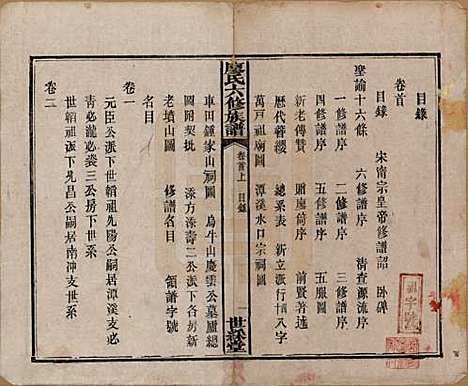 目錄
卷首
目錄 宋南宗皇帝修譜詔 卧碑
聖諭十六條 六修譜序 清查源流序
一修譜序 二修譜序 三修譜序
四修譜序 五修譜序 五服圖
新老傳贊 贈庵荷序 前賢著述
歷代簪纓 總系表 新立派行十八字
萬戸祖廟圖 潭溪水口宗祠圖
廖氏六修族譜 卷首上 目錄 一 世綵堂
車田鍾家山祠圖 烏牛山慶雲公墓廬總
圖附契批 添方添壽二公派下各房新
老墳山圖 修譜名目 領譜字號
名目
卷一
元臣公派下世韜祖先陽公嗣居潭溪支必
青必瀧必裳三公房下世系
世韜祖派下必 公嗣居南冲支世系
卷二